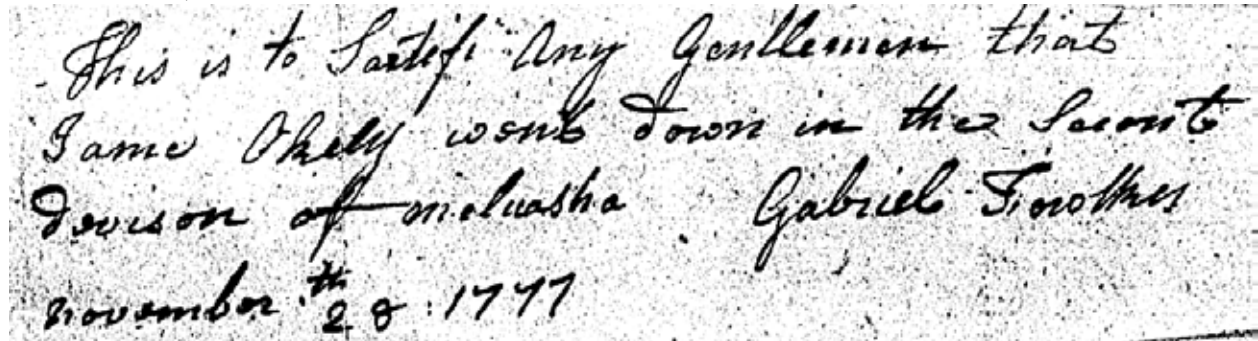 This is to Sartifi Any Gentlemen that
Jame Okely went down in the Secont
Devison of meluasha Gabriel
november th 28 1777